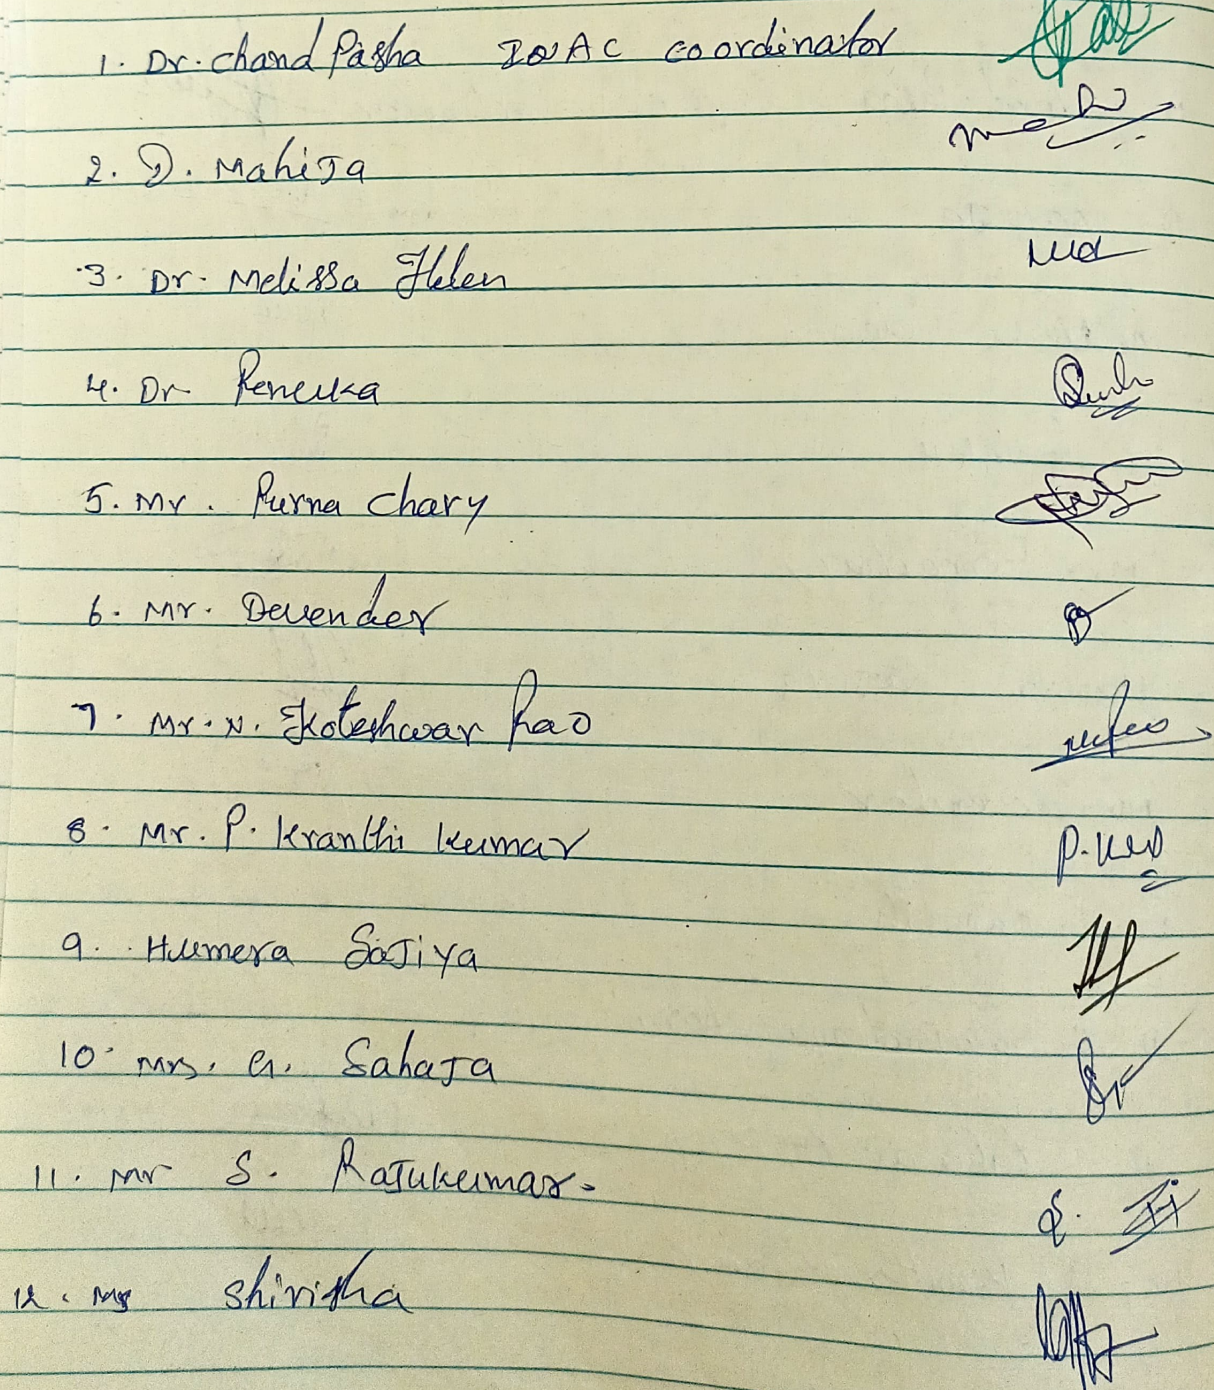 1. Dr. Chand Pasha IQAC coordinator
2. D. Mahija
3. Dr. Melissa Helen
4. Dr Renuka
5. Mr. Purna Chary
6. Mr. Devender
7. Mr. N. Koteshwar Rao
8. Mr. P. Kranthi Kumar P.
9. Humera Sajiya
10. Mrs. G. Sahaja
11. Mr S. Rajukumar. S.
12. Ms Shirisha